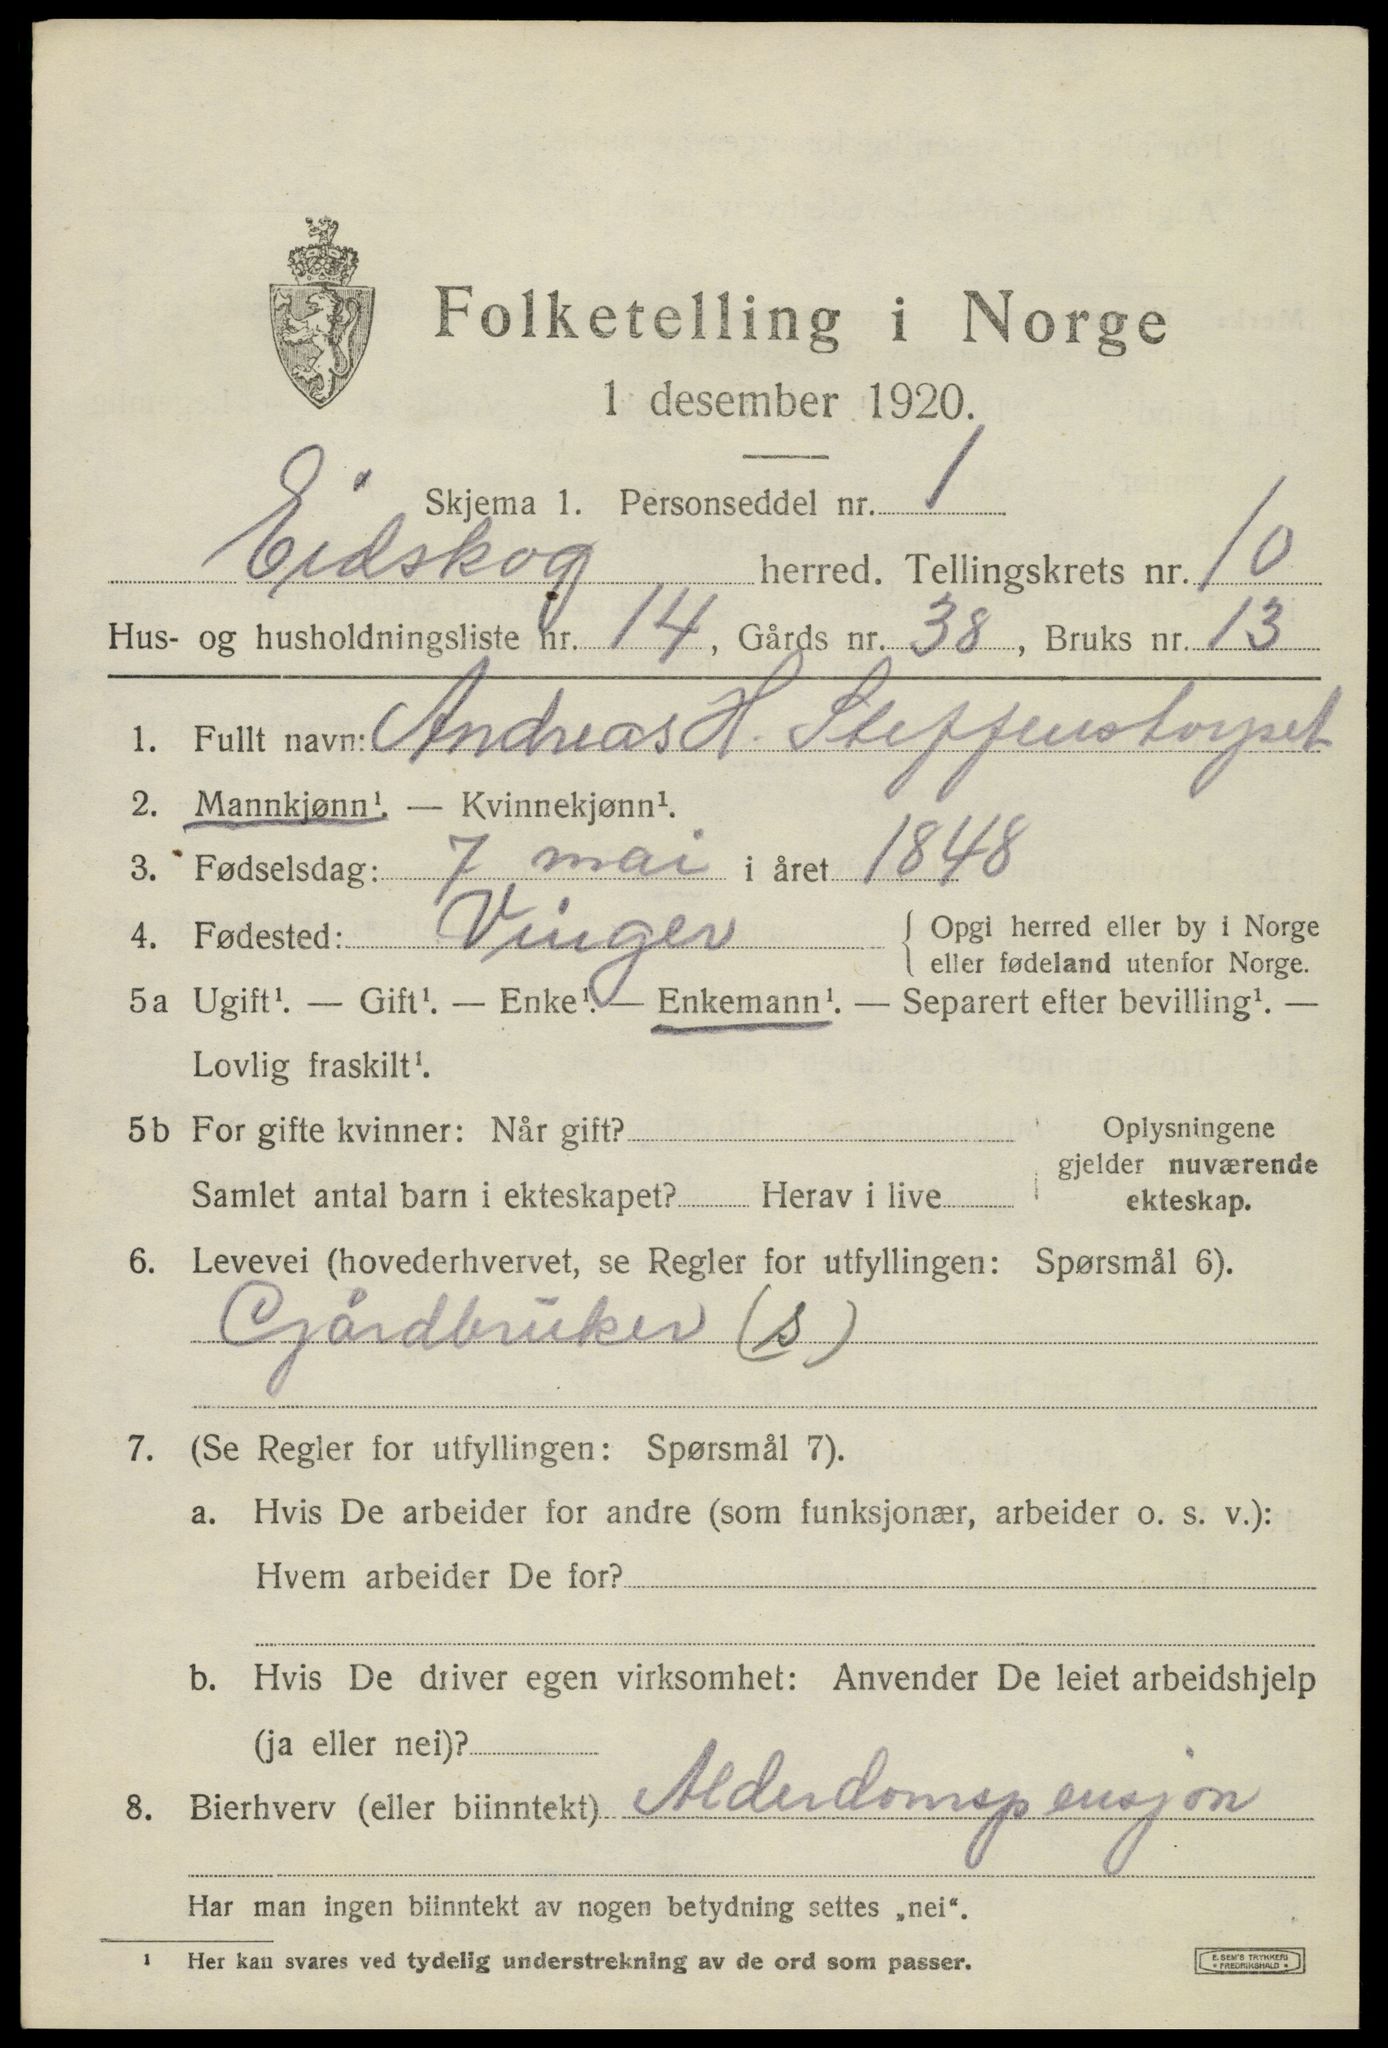 Folketelling i Norge
1 desember 1920.
Skjema 1. Personseddel nr. 1
Eidskog herred. Tellingskrets nr. 10
Hus- og husholdningsliste nr. 14, Gårds nr. 38, Bruks nr. 13
1. Fullt navn: Andreas H. Steffenstorpset
2. Mannkjønn¹. — Kvinnekjønn¹.
3. Fødselsdag: 7 mai i året 1848
4. Fødested: Vinger { Opgi herred eller by i Norge
eller fødeland utenfor Norge.
5a Ugift¹. — Gift¹. — Enke¹. — Enkemann¹. — Separert efter bevilling¹. —
Lovlig fraskilt¹.
5b For gifte kvinner: Når gift? Oplysningene
gjelder nuværende
Samlet antal barn i ekteskapet? Herav i live ekteskap.
6. Levevei (hovederhvervet, se Regler for utfyllingen: Spørsmål 6).
Gjårdbruker (s)
7. (Se Regler for utfyllingen: Spørsmål 7).
a. Hvis De arbeider for andre (som funksjonær, arbeider o. s. v.):
Hvem arbeider De for?
b. Hvis De driver egen virksomhet: Anvender De leiet arbeidshjelp
(ja eller nei)?
8. Bierhverv (eller biinntekt) Alderdomspensjon
Har man ingen biinntekt av nogen betydning settes „nei“.
¹ Her kan svares ved tydelig understrekning av de ord som passer.
E. SEM'S TRYKKERI
* FREDRIKSHALD *